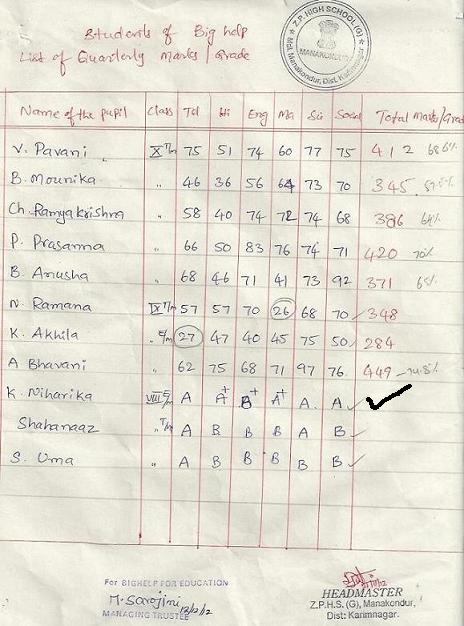 Students of Big help
List of Quarterly Marks / Grade
Z.P. HIGH SCHOOL (G)
MANAKONDUR
Mdl. Manakondur, Dist. Karimnagar.
Name of the pupil Class Tel Hi Eng Ma Sci Social Total Marks/Grade
V. Pavani X T/m 75 51 74 60 77 75 412 68.6%
B. Mounika " 46 36 56 64 73 70 345 57.5%
Ch. Ramyakrishna " 58 40 74 72 74 68 386 64%
P. Prasanna " 66 50 83 76 74 71 420 70%
B. Anusha " 68 46 71 41 73 92 371 65%
N. Ramana IX T/m 57 57 70 26 68 70 348
K. Akhila " E/m 27 47 40 45 75 50 284
A Bhavani " 62 75 68 71 97 76 449 - 74.8%
K. Niharika VIII E/m A A+ B+ A+ A. A
Shahanaaz " T/m A B B B A B
S. Uma " A B B B B B
For BIGHELP FOR EDUCATION
M. Sarojini 12/2/12
MANAGING TRUSTEE
HEADMASTER
Z.P.H.S. (G), Manakondur,
Dist: Karimnagar.